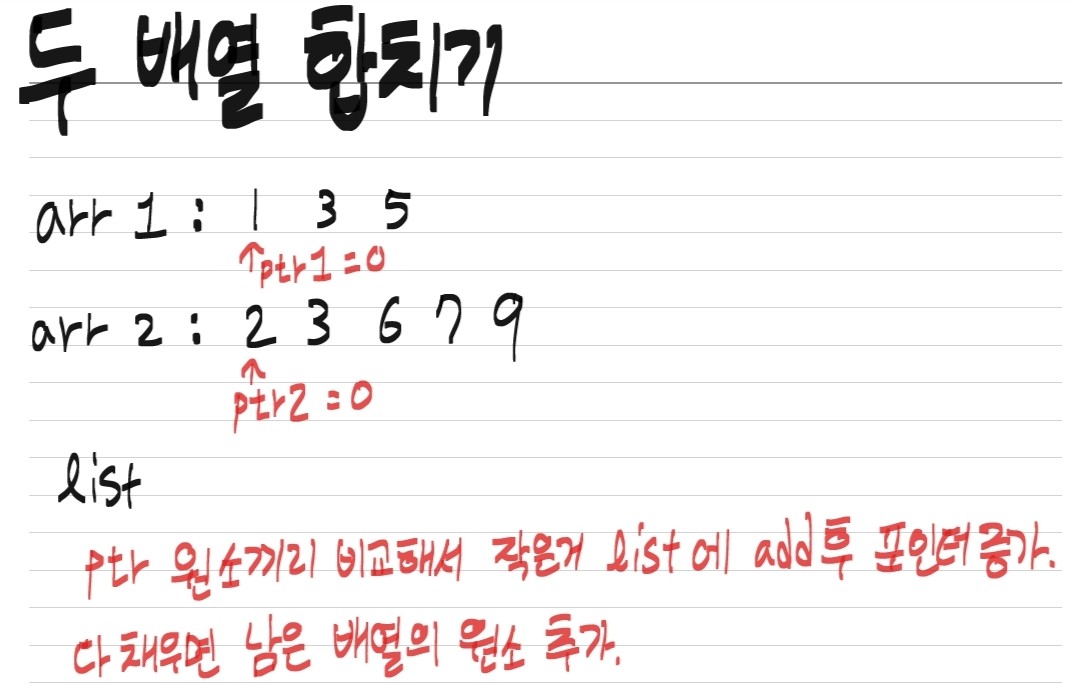 두 배열 합치기
arr 1 : 1 3 5
↑ptr1 = 0
arr 2 : 2 3 6 7 9
↑
ptr2 = 0
list
ptr 원소끼리 비교해서 작은거 list에 add후 포인터증가.
다 채우면 남은 배열의 원소 추가.